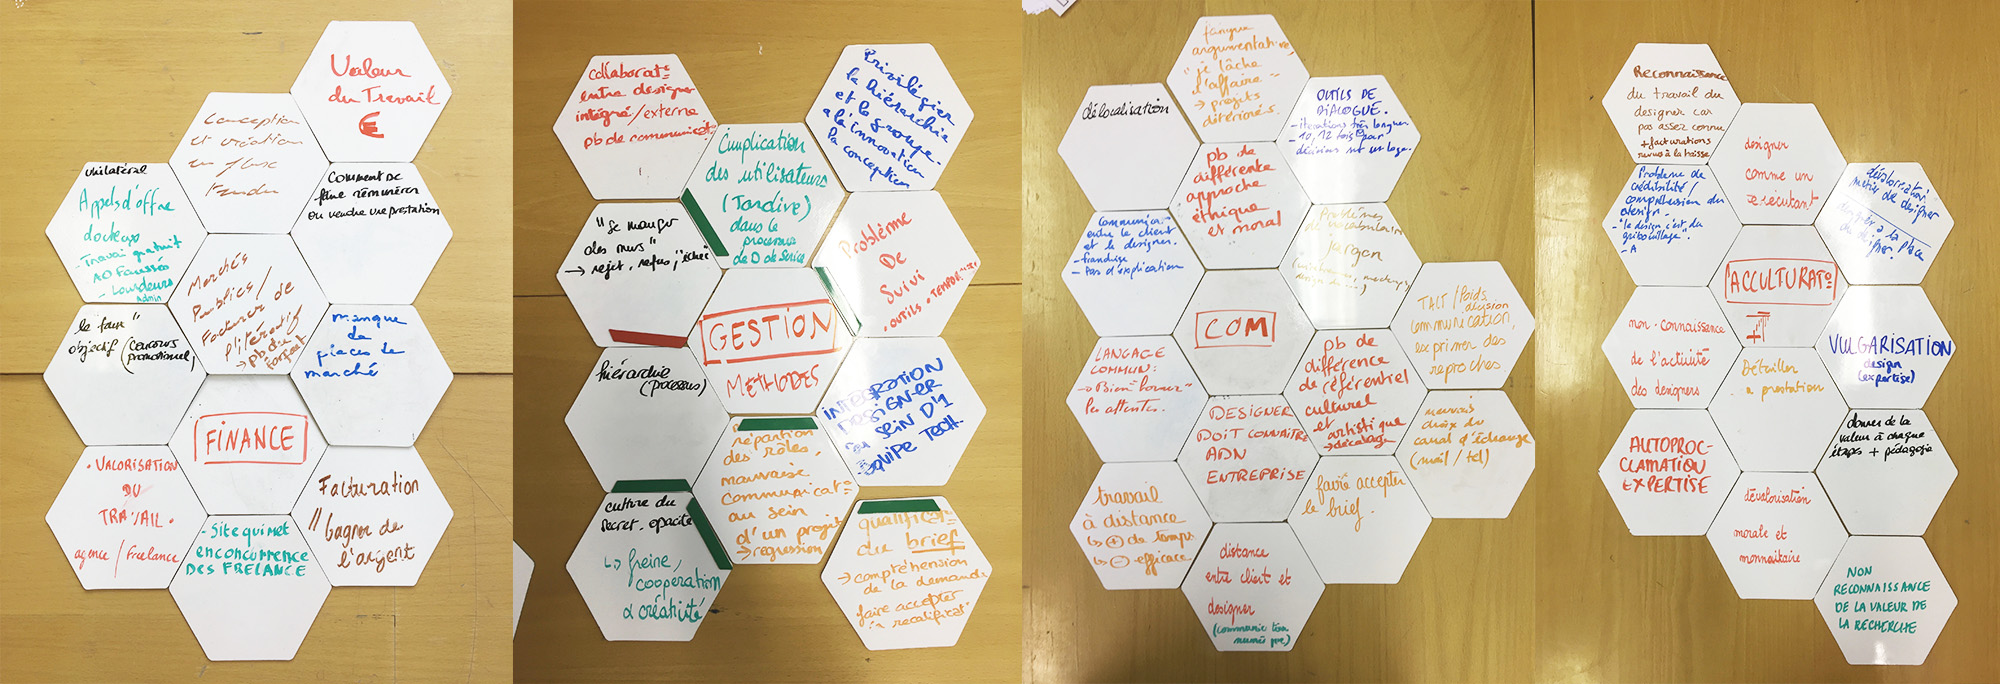 Valeur
du Travail
€
Conception
et création
en flux
tendu
unilatéral
Appels d'offre
dockeys
- Travail gratuit
AO Faussés
- Lourdeurs
Admin
COMMENT SE
faire rémunérer
ou vendre une prestation
Marchés
Publics /
Facturer
pb du
forfait
le faux
objectif (concours
promotionnel)
manque
de
places de
marché
FINANCE
• VALORISATION
DU
TRAVAIL •
agence / freelance
Facturation
"gagner de
l'argent
- Site qui met
en concurrence
DES FRELANCE
collaborat°
entre designer
intégré / externe
pb de communicat°
Implication
des utilisateurs
(Tardive)
dans le
processus
de D de Service
Privilégier
la hiérarchie
et le groupe
à l'innovation
la conception
"Se manger
des murs"
→ rejet, refus, "échec"
Problème
De
Suivi
• OUTILS • TEMPOREL
GESTION
METHODES
hiérarchie
(processus)
INTEGRATION
DESIGN-ER
au SEIN D'1
EQUIPE TECH.
répartion
des rôles,
mauvaise
communicat°
au sein
d'un projet
→ regression
culture du
secret, opacité
↳ freine,
coopération
& créativité
qualificat°
du brief
→ compréhension
de la demande
faire accepter
la requalificat°
fatigue
argumentative,
"je lâche
l'affaire"
→ projets
détériorés.
délocalisation
OUTILS DE
DIALOGUE.
- itérations très longues
10, 12 fois pour
décisions sur un logo.
pb de
différence
approche
éthique
et moral
Communicat°
entre le client
et le designer.
- franchise
- Pas d'explication
Problèmes
de vocabulaire
jargon
COM
TACT / Poids décision
communication,
exprimer des
reproches.
LANGAGE
COMMUN:
→ "Bien borner"
les attentes.
pb de
différence
de référentiel
culturel
et
artistique
→ décalage
DESIGNER
DOIT CONNAITRE
ADN
ENTREPRISE
mauvais
choix du
canal d'échange
(mail / tel)
travail
à distance
↳ (+) de temps
↳ (-) efficace
faire accepter
le brief.
distance
entre client et
designer
Reconnaissance
du travail du
designer car
pas assez connu
+ facturations
revus à la baisse
designer
comme un
exécutant
Problème de
crédibilité /
compréhension du
design.
- "le design c'est du
gribouillage".
- A
dévalorisation
métier de designer
à la place
du designer.
ACCULTURAT°
non-connaissance
de l'activité
des designers
Détailler
la prestation
VULGARISATION
design
(expertise)
AUTOPROC-
CLAMATION
EXPERTISE
donner de la
valeur à chaque
étapes + pédagogie
dévalorisation
morale et
monnaitaire
NON
RECONNAISSANCE
DE LA VALEUR DE
LA RECHERCHE